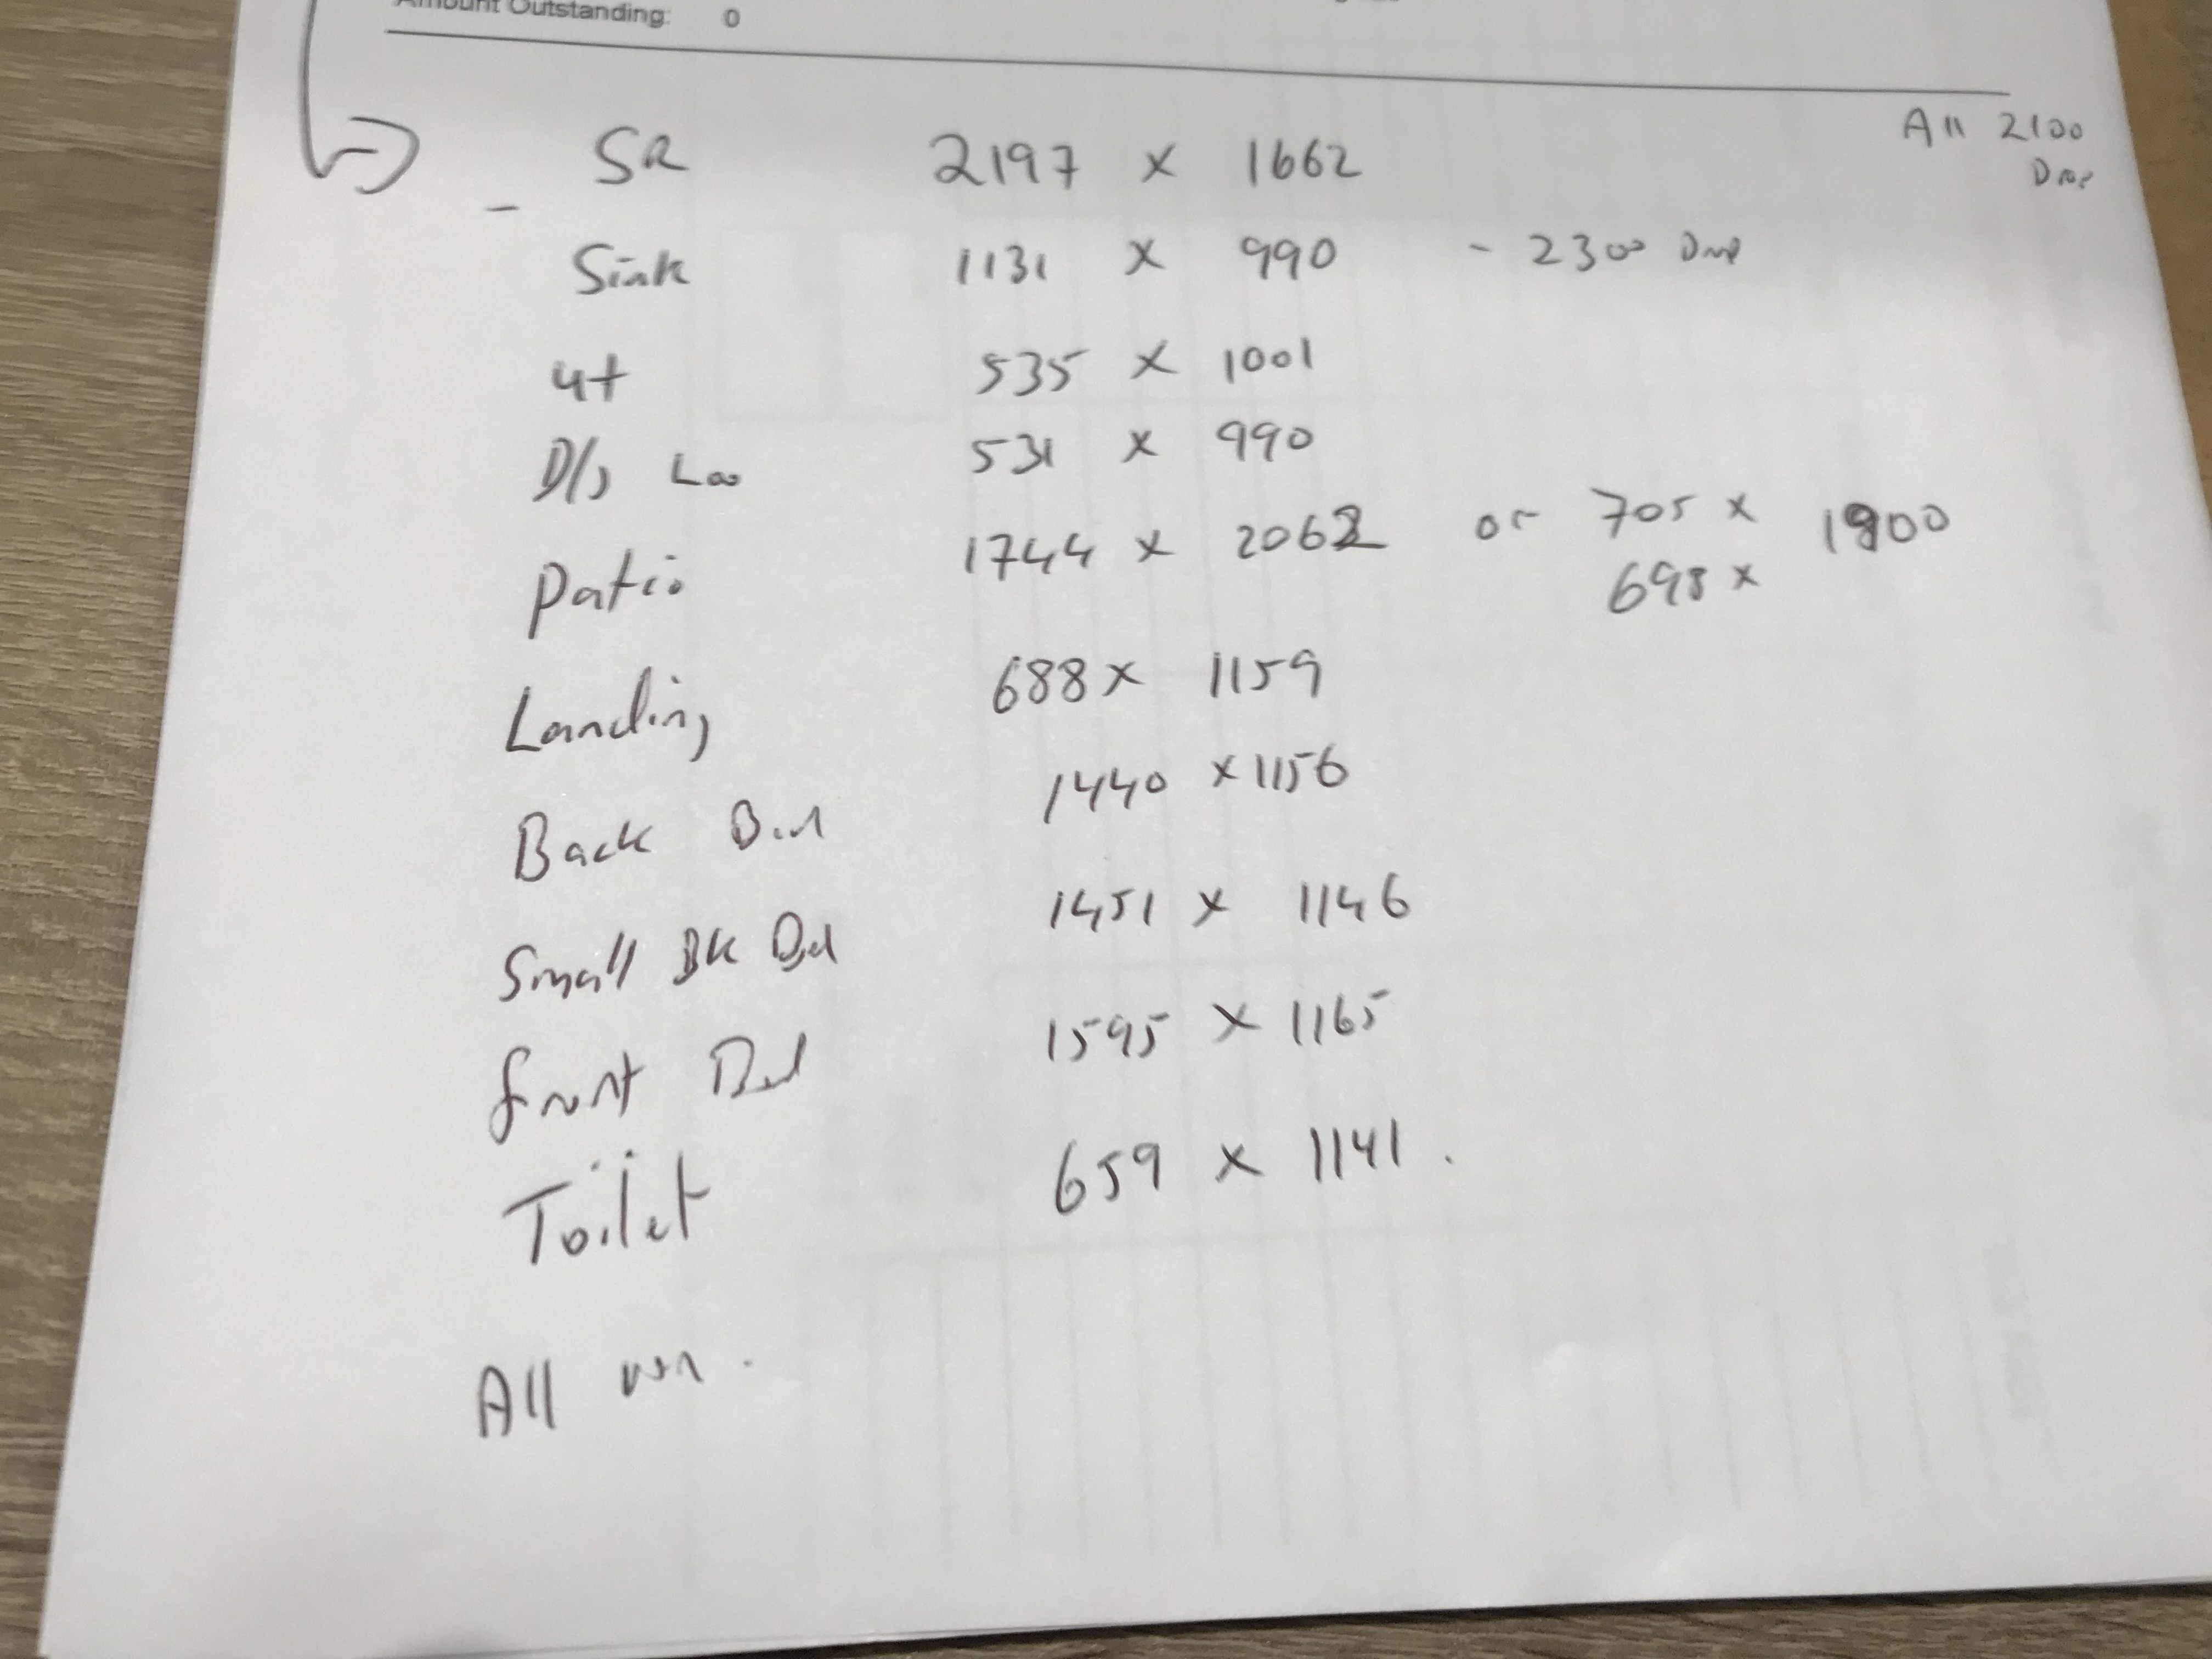 Amount Outstanding: 0
All 2100
Drop
SR 2197 x 1662
Sink 1131 x 990 - 2300 Drop
ut 535 x 1001
D/s Loo 531 x 990
Patio 1744 x 2062 or 705 x 1900
698 x
Landing 688 x 1159
Back Bed 1440 x 1156
Small BK Bed 1451 x 1146
front Bed 1595 x 1165
Toilet 659 x 1141.
All